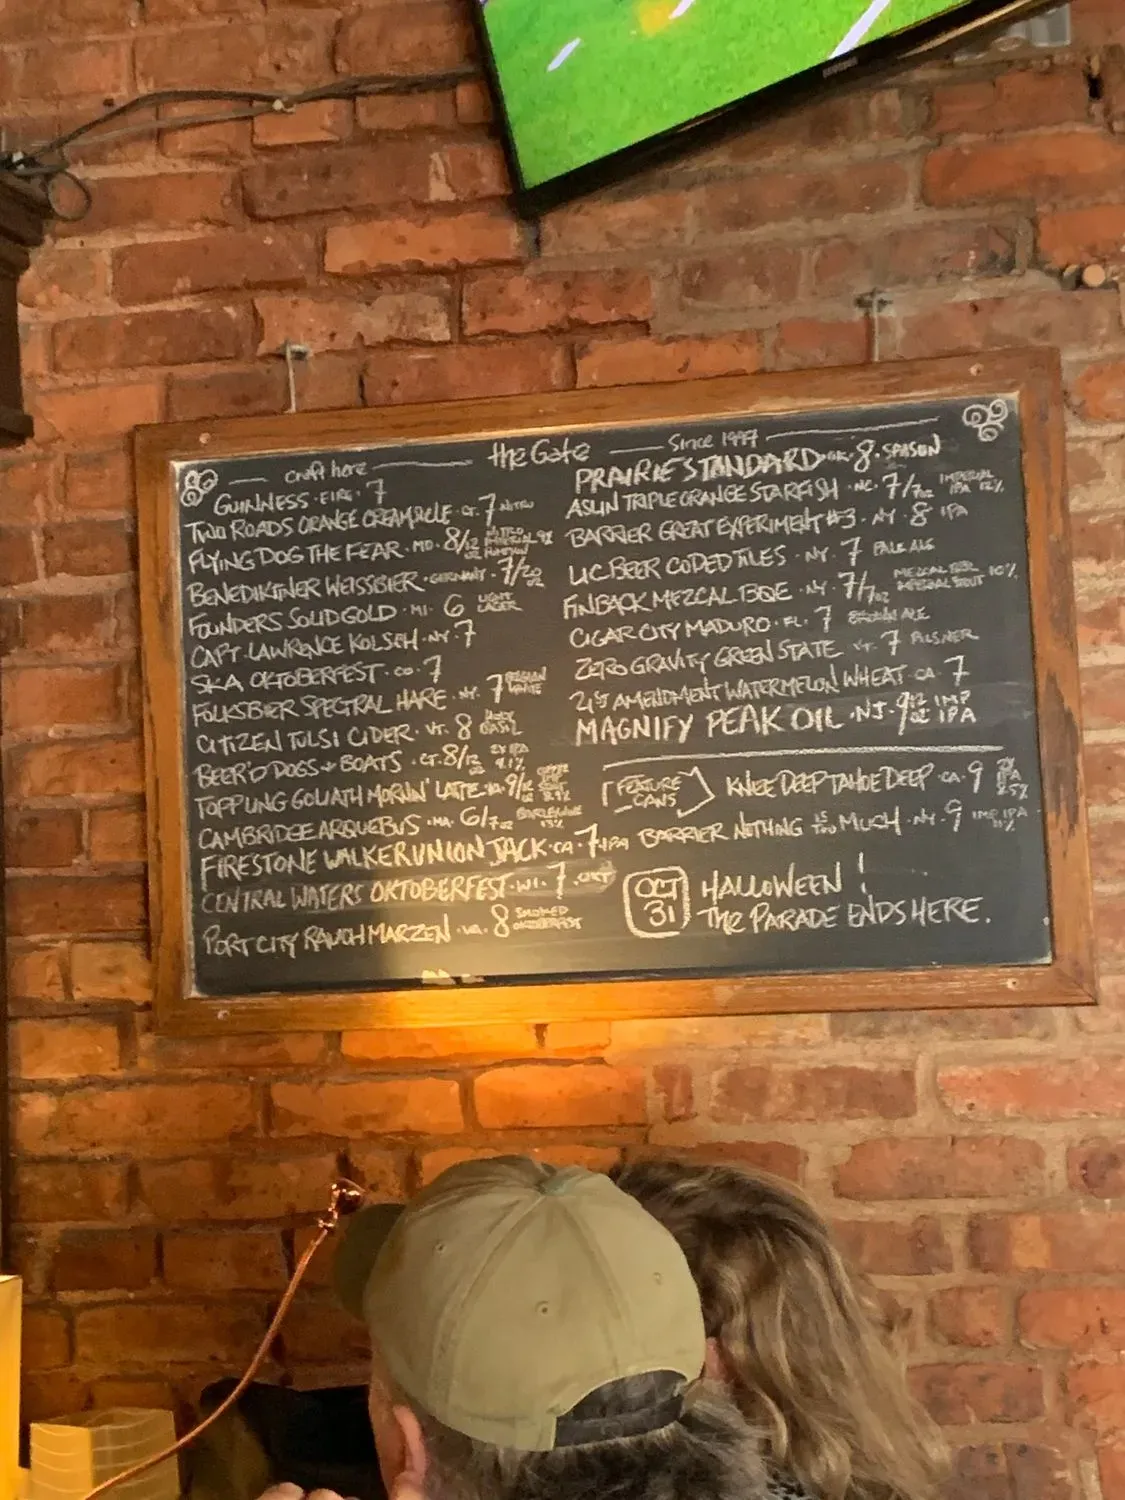 craft here
the Gate
Since 1997
GUINNESS · EIRE · 7
TWO ROADS ORANGE CREAMSICLE · CT · 7 NITRO
FLYING DOG THE FEAR · MD · 8/12oz NITRO IMPERIAL PUMPKIN 9%
BENEDIKTINER WEISSBIER · GERMANY · 7/20oz
FOUNDERS SOLID GOLD · MI · 6 LIGHT LAGER
CAPT. LAWRENCE KOLSCH · NY · 7
SKA OKTOBERFEST · CO · 7
FOLKSBIER SPECTRAL HARE · NY · 7 BELGIAN WHITE
CITIZEN TULSI CIDER · VT · 8 HOLY BASIL
BEER'D DOGS + BOATS · CT · 8/12oz 2X IPA 9.1%
TOPPLING GOLIATH MORNIN' LATTE · IA · 9/12oz
CAMBRIDGE ARQUEBUS · MA · 6/7oz BARLEYWINE 13%
FIRESTONE WALKER UNION JACK · CA · 7 IPA
CENTRAL WATERS OKTOBERFEST · WI · 7 · OKT
PORT CITY RAUCH MARZEN · VA · 8 SMOKED OKTOBERFEST
PRAIRIE STANDARD · OK · 8 · SAISON
ASLIN TRIPLE ORANGE STARFISH · NC · 7/7oz IMPERIAL IPA 12%
BARRIER GREAT EXPERIMENT #3 · NY · 8 IPA
LIC BEER CODED TILES · NY · 7 PALE ALE
FINBACK MEZCAL BBQE · NY · 7/7oz MEZCAL BBL IMPERIAL STOUT 10%
CIGAR CITY MADURO · FL · 7 BROWN ALE
ZERO GRAVITY GREEN STATE VT · 7 PILSNER
21st AMENDMENT WATERMELON WHEAT CA · 7
MAGNIFY PEAK OIL · NJ · 9/12oz IMP IPA
FEATURE CANS
KNEE DEEP TAHOE DEEP · CA · 9 2X IPA 8.5%
BARRIER NOTHING IS TOO MUCH · NY · 9 IMP IPA 11%
OCT 31
HALLOWEEN!
THE PARADE ENDS HERE.